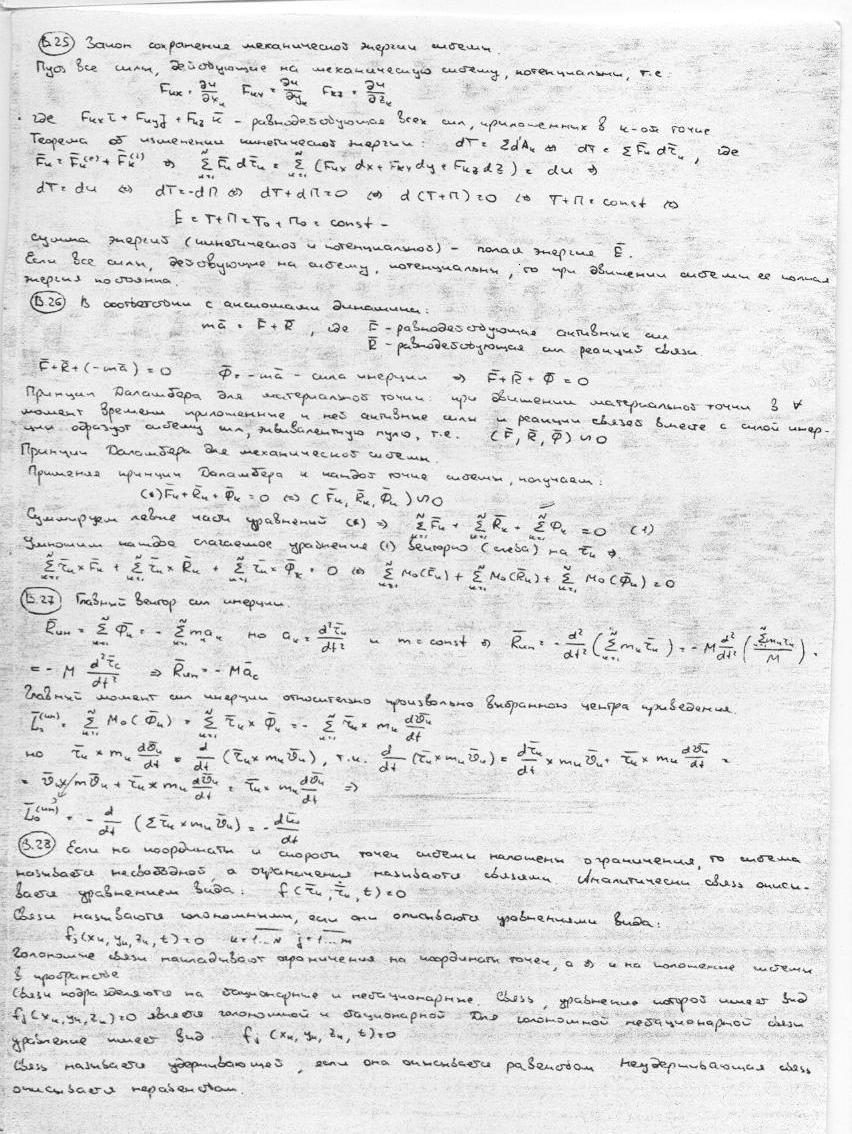 В.25 Закон сохранения механической энергии системы.
Пусть все силы, действующие на механическую систему, потенциальны, т.е:
Fкx = ∂u/∂xк Fкy = ∂u/∂yк Fкz = ∂u/∂zк
где Fкx i̅ + Fкy j̅ + Fкz k̅ – равнодействующая всех сил, приложенных в к-ой точке
Теорема об изменении кинетической энергии: dT = Σd'Aк ⇔ dT = ΣF̅к dr̅к, где
F̅к = F̅к⁽ᵉ⁾ + F̅к⁽ⁱ⁾ ⇒ Σ(к=1..N) F̅к dr̅к = Σ(к=1..N) (Fкx dx + Fкy dy + Fкz dz) = du ⇒
dT = du ⇔ dT = -dП ⇔ dT + dП = 0 ⇔ d(T+П) = 0 ⇔ T+П = const ⇔
E = T+П = T₀+П₀ = const –
сумма энергий (кинетической и потенциальной) – полая энергия E̅.
Если все силы, действующие на систему, потенциальны, то при движении системы ее полная
энергия постоянна.
В.26 В соответствии с аксиомами динамики:
ma̅ = F̅ + R̅, где F̅ – равнодействующая активних сил
R̅ – равнодействующая сил реакций связи.
F̅ + R̅ + (-ma̅) = 0 Φ̅ = -ma̅ – сила инерции ⇒ F̅ + R̅ + Φ̅ = 0
Принцип Даламбера для материальной точки: при движении материальной точки в ∀
момент времени приложенные к ней активные силы и реакции связей вместе с силой инер-
ции образуют систему сил, эквивалентную нулю, т.е. (F̅, R̅, Φ̅) ∾ 0
Принцип Даламбера для механической системы.
Применяя принцип Даламбера к каждой точке системы, получаем:
(*) F̅к + R̅к + Φ̅к = 0 ⇔ (F̅к, R̅к, Φ̅к) ∾ 0
Суммируем левые части уравнений (*) ⇒ Σ(к=1..N) F̅к + Σ(к=1..N) R̅к + Σ(к=1..N) Φк = 0 (1)
Умножим каждое слагаемое уравнения (1) векторно (слева) на r̅к ⇒
Σ(к=1..N) r̅к × F̅к + Σ(к=1..N) r̅к × R̅к + Σ(к=1..N) r̅к × Φ̅к = 0 ⇔ Σ(к=1..N) M₀(F̅к) + Σ(к=1..N) M₀(R̅к) + Σ(к=1..N) M₀(Φ̅к) = 0
В.27 Главний вектор сил инерции.
R̅ин = Σ(к=1..N) Φ̅к = - Σ(к=1..N) mкaк но aк = d²r̅к/dt² и m = const ⇒ R̅ин = - d²/dt² (Σ(к=1..N) mк r̅к) = -M d²/dt² (Σ(к=1..N) mк r̅к / M) =
= -M d²r̅c/dt² ⇒ R̅ин = -Ma̅c
Главный момент сил инерции относительно произвольно выбранного центра приведения.
L̅₀⁽ⁱⁿ⁾ = Σ(к=1..N) M₀(Φ̅к) = Σ(к=1..N) r̅к × Φ̅к = - Σ(к=1..N) r̅к × mк dv̅к/dt
но r̅к × mк dv̅к/dt = d/dt (r̅к × mк v̅к), т.к. d/dt (r̅к × mк v̅к) = dr̅к/dt × mк v̅к + r̅к × mк dv̅к/dt =
= v̅к × mv̅к + r̅к × mк dv̅к/dt = r̅к × mк dv̅к/dt ⇒
L̅₀⁽ⁱⁿ⁾ = - d/dt (Σ r̅к × mк v̅к) = - dL̅₀/dt
В.28 Если на координаты и скорости точек системы наложены ограничения, то система
называется несвободной, а ограничения называются связями. Аналитически связь описы-
вается уравнением вида: f(r̅к, ṙ̅к, t) = 0
Связи називаются голономными, если они описываются уравнениями вида:
fj(xк, yк, zк, t) = 0 к = 1...N j = 1...m
Голономные связи накладывают ограничения на координаты точек, а ⇒ и на положение системы
в пространстве
Связи подразделяются на стационарные и нестационарные. Связь, уравнение которой имеет вид
fj(xк, yк, zк) = 0 является голономной и стационарной. Для голономной нестационарной связи
уравнение имеет вид fj (xк, yк, zк, t) = 0
Связь называется удерживающей, если она описывается равенством. Неудерживающая связь
описывается неравенством.